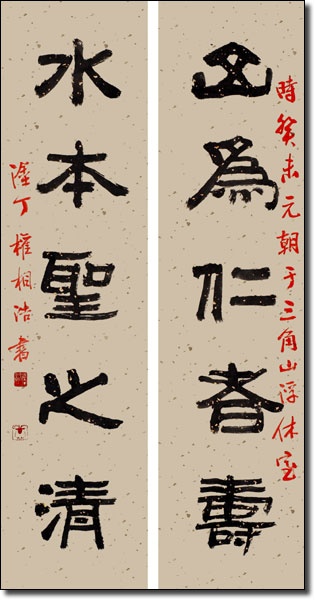 時癸未元朝于三角山浮休室
山為仁者壽
水本聖之清
塗丁權相浩書